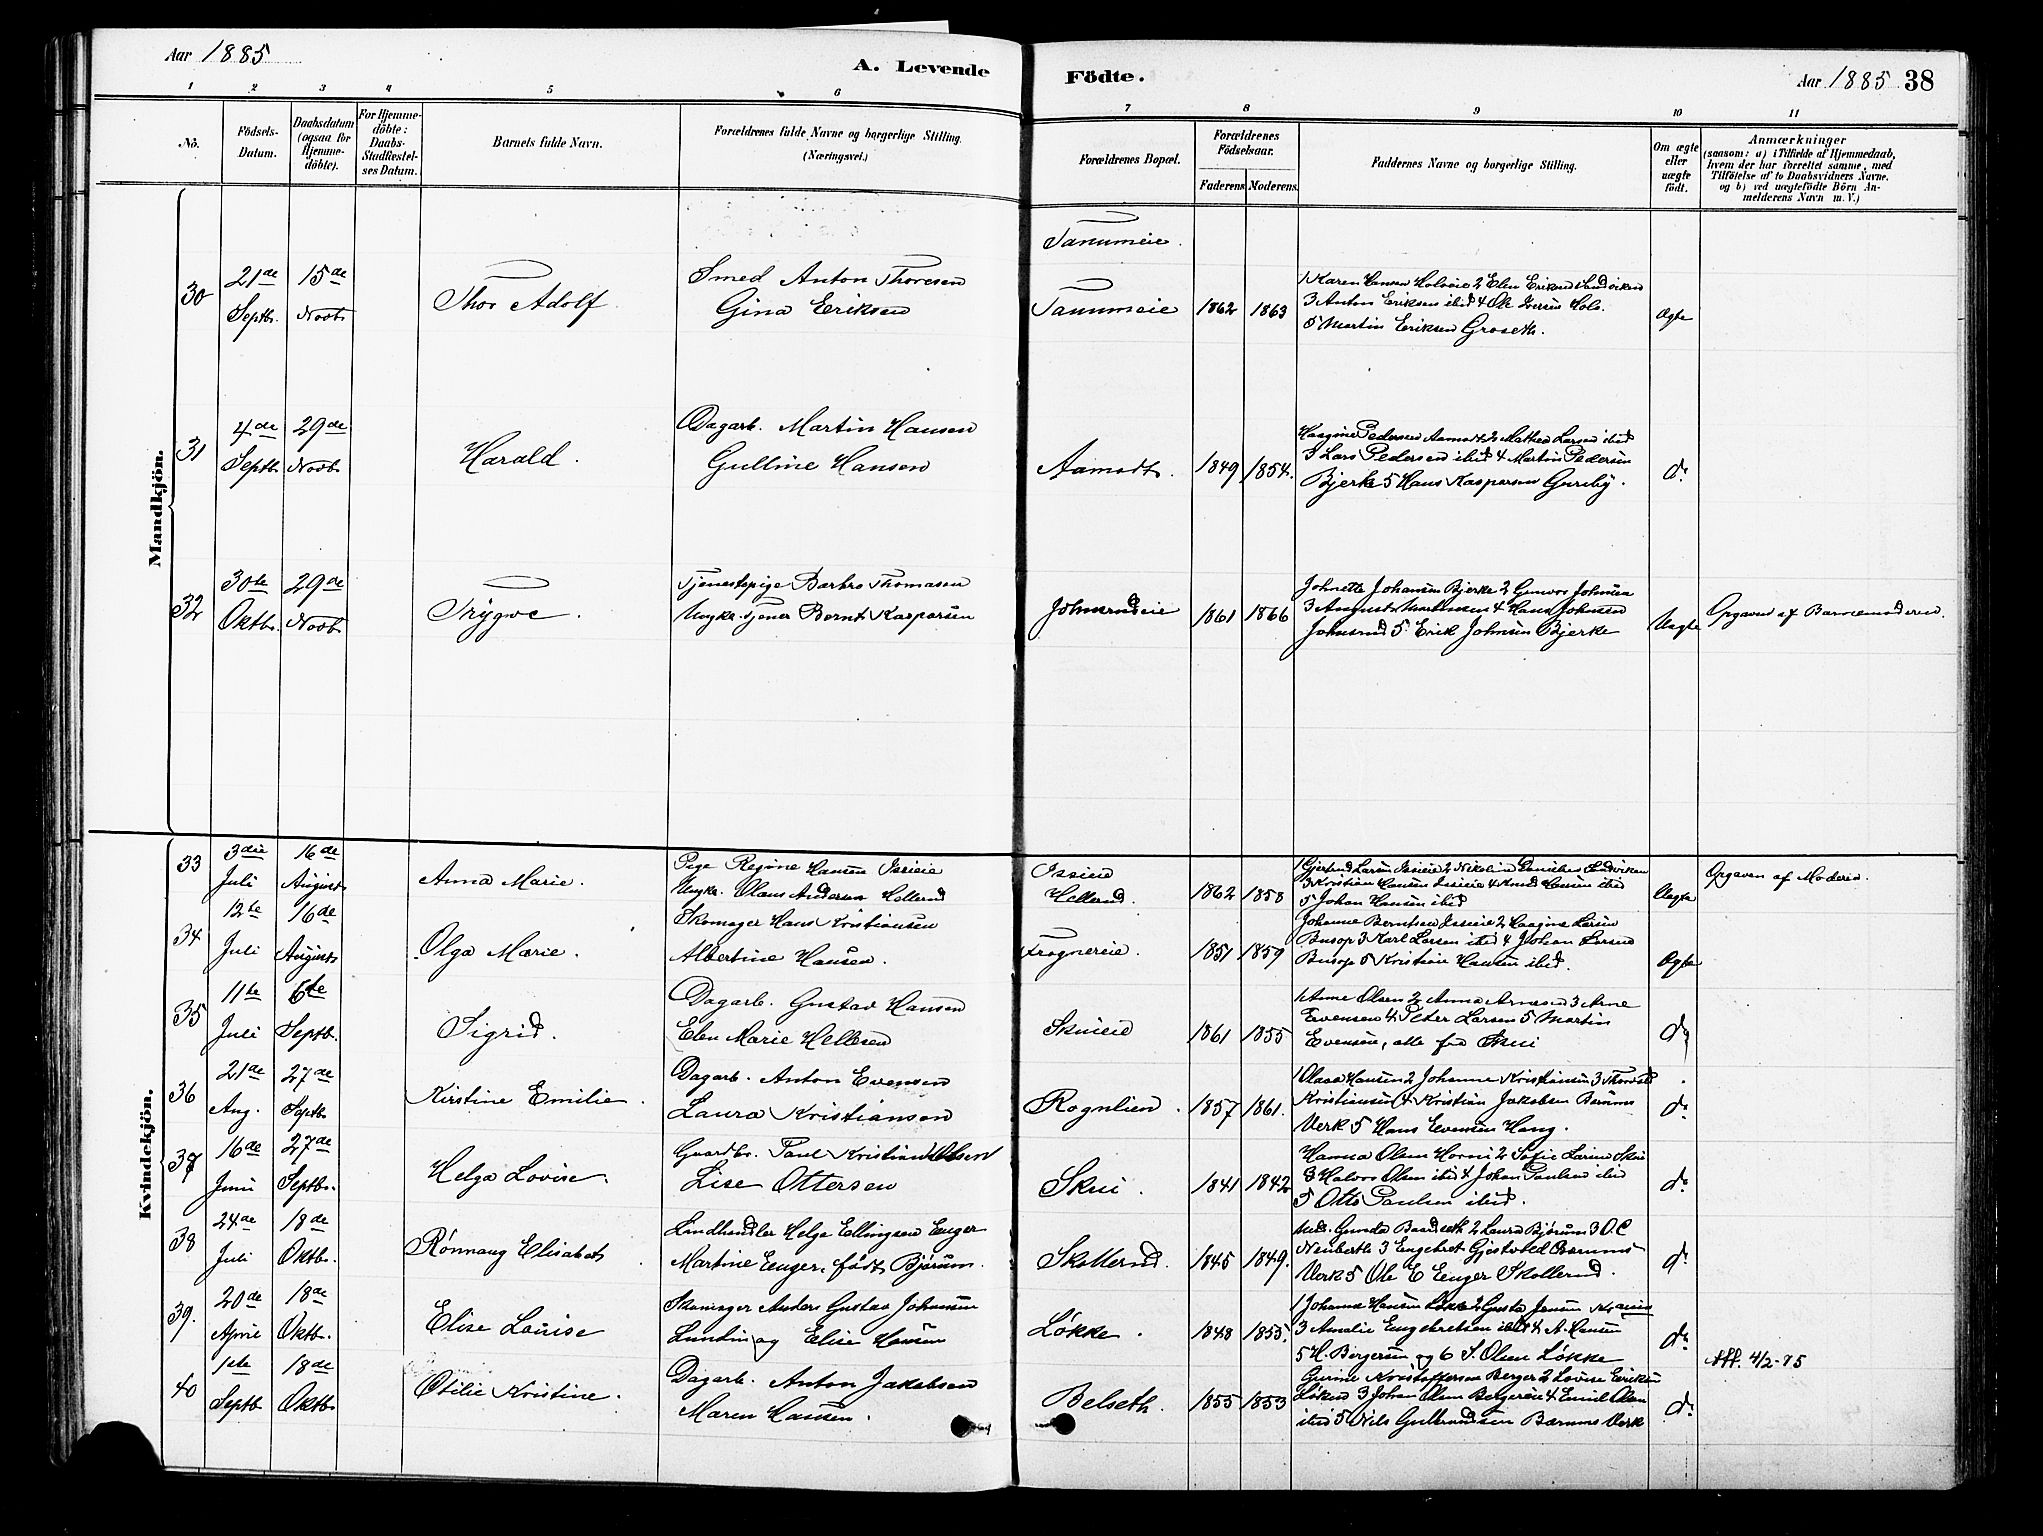 Aar 1885
A. Levende
1 2 3 4 5 6
No.
Födsels-
Datum.
Daabsdatum
(ogsaa for
Hjemme-
döbte).
For Hjemme-
döbte:
Daabs-
Stadfæstel-
ses Datum.
Barnets fulde Navn.
Forældrenes fulde Navne og borgerlige Stilling
(Næringsvei.)
Mandkjön.
30
21de
Septb.
15de
Novb.
Thor Adolf
Smed Anton Thoresen
Gina Eriksen
31
4de
Septb.
29de
Novb.
Harald.
Dagarb. Martin Hansen
Gulline Hansen
32
30te
Oktbr.
29de
Novb.
Trygve.
Tjenestepige Barbro Thomasen
Ungkr. tjener Bernt Kaspersen
Kvindekjön.
33
3die
Juli
16de
August
Anna Marie.
Pige Regine Hansen Isieie
Ungkr. Olaus Andersen Hellerud
34
12te
Juli
16de
August
Olga Marie.
Skomager Hans Kristiansen
Albertine Hansen.
35
11te
Juli
6te
Septbr.
Sigrid.
Dagarb. Gustav Hansen
Elen Marie Hellesen
36
21de
Aug.
27de
Septb.
Kirstine Emilie.
Dagarb. Anton Evensen
Laura Kristiansen
37
16de
Juni
27de
Septbr.
Helga Lovise.
Gaardbr. Paul Kristian Olsen
Lise Ottersen
38
24de
Juli
18de
Oktbr.
Rønnaug Elisabet
Landhandler Helge Ellingsen Enger
Martine Enger, født Bjørum.
39.
20de
April
18de
Oktbr.
Elise Lauise
Skomager Anders Gustav Johansen
Lundin og Elise Hansen
40
1ste
Septb.
18de
Oktbr.
Otilie Kristine.
Dagarb. Anton Jakobsen
Maren Hansen.
Födte.
Aar 1885 38
7 8 9 10 11
Forældrenes Bopæl.
Forældrenes
Födselsaar.
Faderens Moderens.
Faddernes Navne og borgerlige Stilling.
Om ægte
eller
uægte
födt.
Anmærkninger
(saasom: a) i Tilfælde af Hjemmedaab,
hvem der har forrettet samme, med
Tilföielse af to Daabsvidners Navne.
og b) ved uægtefödte Börn An-
melderens Navn m. V.)
Tanumeie.
Tanumeie 1862 1863
1 Karen Hansen Holseie 2 Elen Eriksen Sandviken
3 Anton Eriksen ibid 4 Ole Iversen Hols.
5 Martin Eriksen Groseth.
Ægte
Aamodt. 1849 1854.
Haagine Pedersen Aamodt 2 Mathea Larsen ibid
3 Lars Pedersen ibid 4 Martin Pedersen
Bjerke 5 Hans Kaspersen Gureby.
do
Johnsrudeie 1861 1866
Johnette Johansen Bjerke 2 Gunvor Johnsen
3 August 4 Hans Johnsen
Johnsrud 5 Erik Johnsen Bjerke
Uægte
Opgaven af Barnemoderen.
Isieie
Hellerud. 1862 1858
1 Gjertrud Larsen Isieie 2 Nikoline Danielsen Sandviken
3 Kristian Hansen Isieie 4 Knud Hansen ibid
5 Johan Hansen ibid
Uægte
Opgaven af Moderen.
Frognereie. 1851 1859
Johanne Berntsen Isieie 2 Haagine Larsen
Busop 3 Karl Larsen ibid 4 Johan Larsen
Busop 5 Kristian Hansen ibid.
Ægte
Skuieie 1861 1855
1 Anne Olsen 2 Anna Arnesen 3 Arne
Evensen 4 Peter Larsen 5 Martin
Evensen, alle fra Skui
do
Rognlien. 1857 1861.
1 Olava Hansen 2 Johanne Kristiansen 3 Thorvald
Kristiansen 4 Kristian Jakobsen Bærums
Verk 5 Hans Evensen Haug.
do
Skui. 1841 1842
Hanna Olsen Horni 2 Sofie Larsen Skui
3 Halvor Olsen ibid 4 Johan Paulsen ibid
5 Otto Paulsen ibid.
do
Skollerud. 1845 1849.
Gunda Baardseth 2 Laura Bjørum 3 O.C
Neuberth 3 Engebret Gjestvold Bærums
Verk 5 Ole E Enger Skollerud.
do
Løkke. 1848 1855.
1 Johanne Hansen Løkke 2 Gusta Jensen
3 Amalie Engebretsen ibid 4 A. Hansen
5 H. Bergersen og 6 S. Olsen Løkke
do
Belseth. 1855 1853
Gurine Kristoffersen Berger 2 Lovise Eriksen
Løken 3 Johan Olsen Bergereie 4 Emil Olsen
ibid 5 Nils Gulbrandsen Bærums Verk
do
Aff. 4/2-75